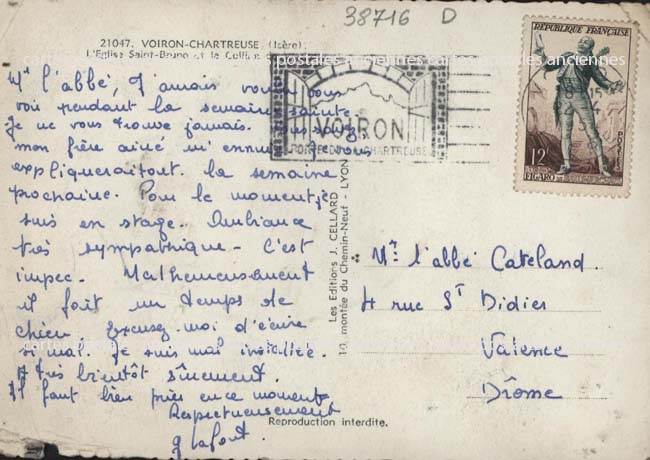 38716 D
21047. VOIRON-CHARTREUSE (Isère)
L'Eglise Saint-Bruno et la Colline
Mr l'abbé, J'aurais voulu vous
voir pendant la semaine sainte.
Je ne vous trouve jamais.
mon frère ainé m'ennuie. Je vous
expliquerai tout la semaine
prochaine. Pour le moment je
suis en stage. Ambiance
très sympathique - C'est
impec. Malheureusement
il fait un temps de
chien Excusez-moi d'écrire
si mal. Je suis mal installée.
A très bientôt sûrement.
Il faut bien prier en ce moment
Respectueusement
g Lafont.
Reproduction interdite.
Les Editions J. CELLARD
10, montée du Chemin-Neuf - LYON
VOIRON
PORTE DE LA CHARTREUSE
REPUBLIQUE FRANÇAISE
12F
POSTES
FIGARO
15
Mr l'abbé Cateland.
4 rue St Didier
Valence
Drôme
cartes postales anciennes